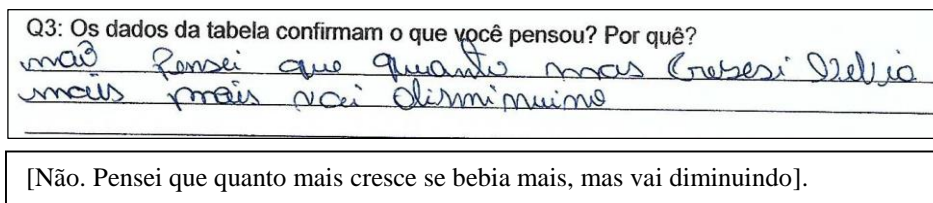 Q3: Os dados da tabela confirmam o que você pensou? Por quê?
não Pensei que quanto mas Cresesi Bebia
mais mais vai disminuino
[Não. Pensei que quanto mais cresce se bebia mais, mas vai diminuindo].